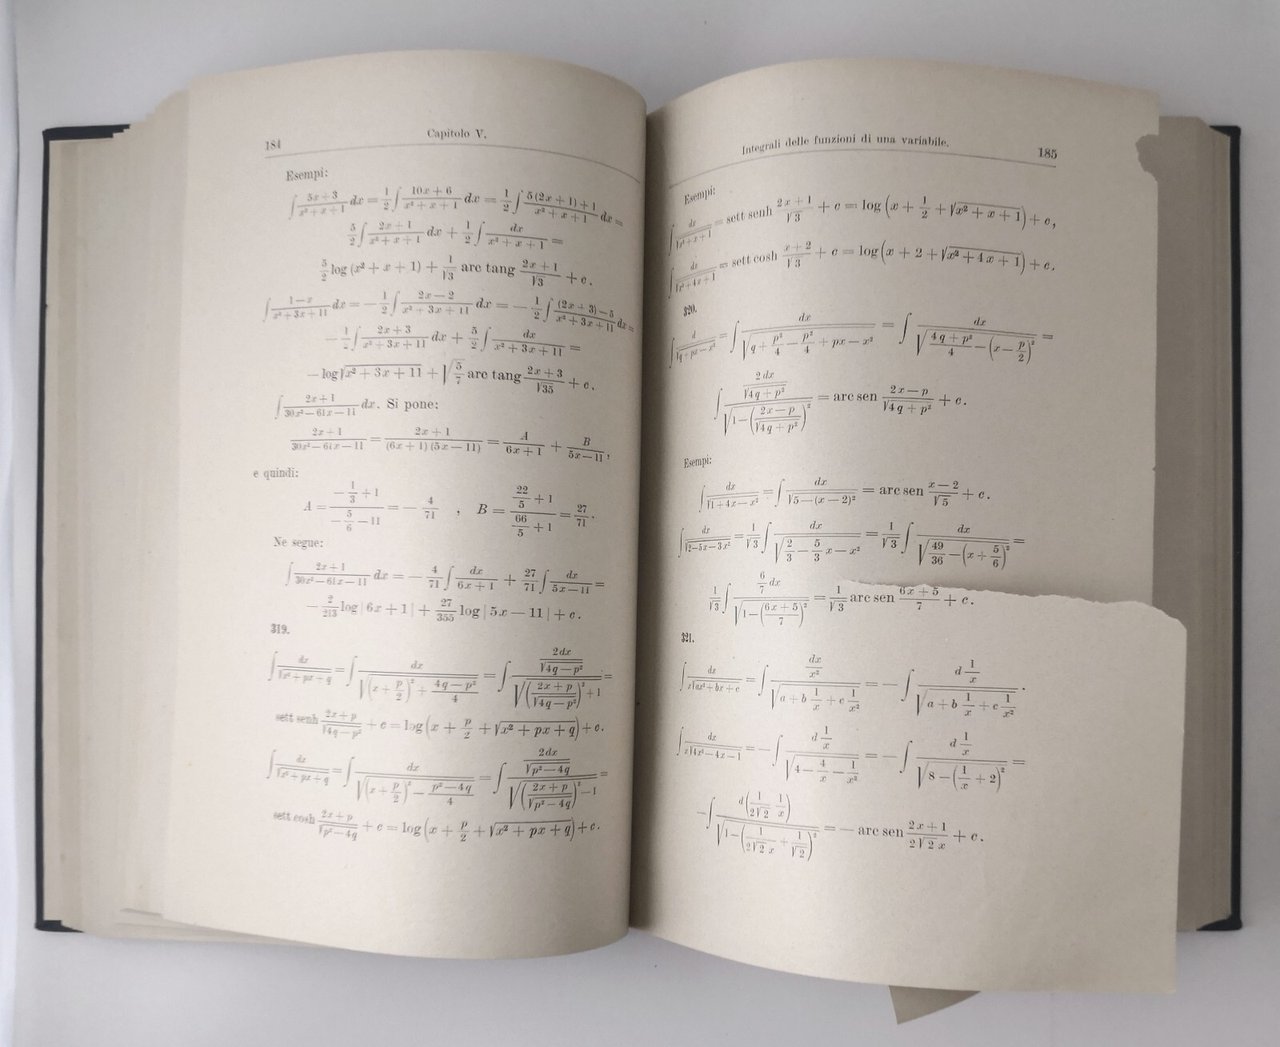 184
Capitolo V.
Esempi:
∫ (5x + 3)/(x² + x + 1) dx = 1/2 ∫ (10x + 6)/(x² + x + 1) dx = 1/2 ∫ (5(2x + 1) + 1)/(x² + x + 1) dx =
5/2 ∫ (2x + 1)/(x² + x + 1) dx + 1/2 ∫ dx/(x² + x + 1) =
5/2 log (x² + x + 1) + 1/√3 arc tang (2x + 1)/√3 + c.
∫ (1 − x)/(x² + 3x + 11) dx = − 1/2 ∫ (2x − 2)/(x² + 3x + 11) dx = − 1/2 ∫ ((2x + 3) − 5)/(x² + 3x + 11) dx =
− 1/2 ∫ (2x + 3)/(x² + 3x + 11) dx + 5/2 ∫ dx/(x² + 3x + 11) =
− log √(x² + 3x + 11) + √(5/7) arc tang (2x + 3)/√35 + c.
∫ (2x + 1)/(30x² − 61x − 11) dx. Si pone:
(2x + 1)/(30x² − 61x − 11) = (2x + 1)/((6x + 1)(5x − 11)) = A/(6x + 1) + B/(5x − 11),
e quindi:
A = (− 1/3 + 1)/(− 5/6 − 11) = − 4/71 , B = (22/5 + 1)/(66/5 + 1) = 27/71.
Ne segue:
∫ (2x + 1)/(30x² − 61x − 11) dx = − 4/71 ∫ dx/(6x + 1) + 27/71 ∫ dx/(5x − 11) =
− 2/213 log | 6x + 1 | + 27/355 log | 5x − 11 | + c.
319.
∫ dx/√(x² + px + q) = ∫ dx/√((x + p/2)² + (4q − p²)/4) = ∫ (2dx/√(4q − p²))/√(((2x + p)/√(4q − p²))² + 1) =
sett senh (2x + p)/√(4q − p²) + c = log (x + p/2 + √(x² + px + q)) + c.
∫ dx/√(x² + px + q) = ∫ dx/√((x + p/2)² − (p² − 4q)/4) = ∫ (2dx/√(p² − 4q))/√(((2x + p)/√(p² − 4q))² − 1) =
sett cosh (2x + p)/√(p² − 4q) + c = log (x + p/2 + √(x² + px + q)) + c.
Integrali delle funzioni di una variabile.
185
Esempi:
∫ dx/√(x² + x + 1) = sett senh (2x + 1)/√3 + c = log (x + 1/2 + √(x² + x + 1)) + c,
∫ dx/√(x² + 4x + 1) = sett cosh (x + 2)/√3 + c = log (x + 2 + √(x² + 4x + 1)) + c.
320.
∫ d/√(q + px − x²) = ∫ dx/√(q + p²/4 − p²/4 + px − x²) = ∫ dx/√((4q + p²)/4 − (x − p/2)²) =
∫ (2dx/√(4q + p²))/√(1 − ((2x − p)/√(4q + p²))²) = arc sen (2x − p)/√(4q + p²) + c.
Esempi:
∫ dx/√(1 + 4x − x²) = ∫ dx/√(5 − (x − 2)²) = arc sen (x − 2)/√5 + c.
∫ dx/√(2 − 5x − 3x²) = 1/√3 ∫ dx/√(2/3 − 5/3 x − x²) = 1/√3 ∫ dx/√(49/36 − (x + 5/6)²) =
1/√3 ∫ (6/7 dx)/√(1 − ((6x + 5)/7)²) = 1/√3 arc sen (6x + 5)/7 + c.
321.
∫ dx/(x√(ax² + bx + c)) = ∫ (dx/x²)/√(a + b 1/x + c 1/x²) = − ∫ (d 1/x)/√(a + b 1/x + c 1/x²).
∫ dx/(x√(4x² − 4x − 1)) = − ∫ (d 1/x)/√(4 − 4/x − 1/x²) = − ∫ (d 1/x)/√(8 − (1/x + 2)²) =
− ∫ d(1/(2√2) 1/x)/√(1 − (1/(2√2 x) + 1/√2)²) = − arc sen (2x + 1)/(2√2 x) + c.